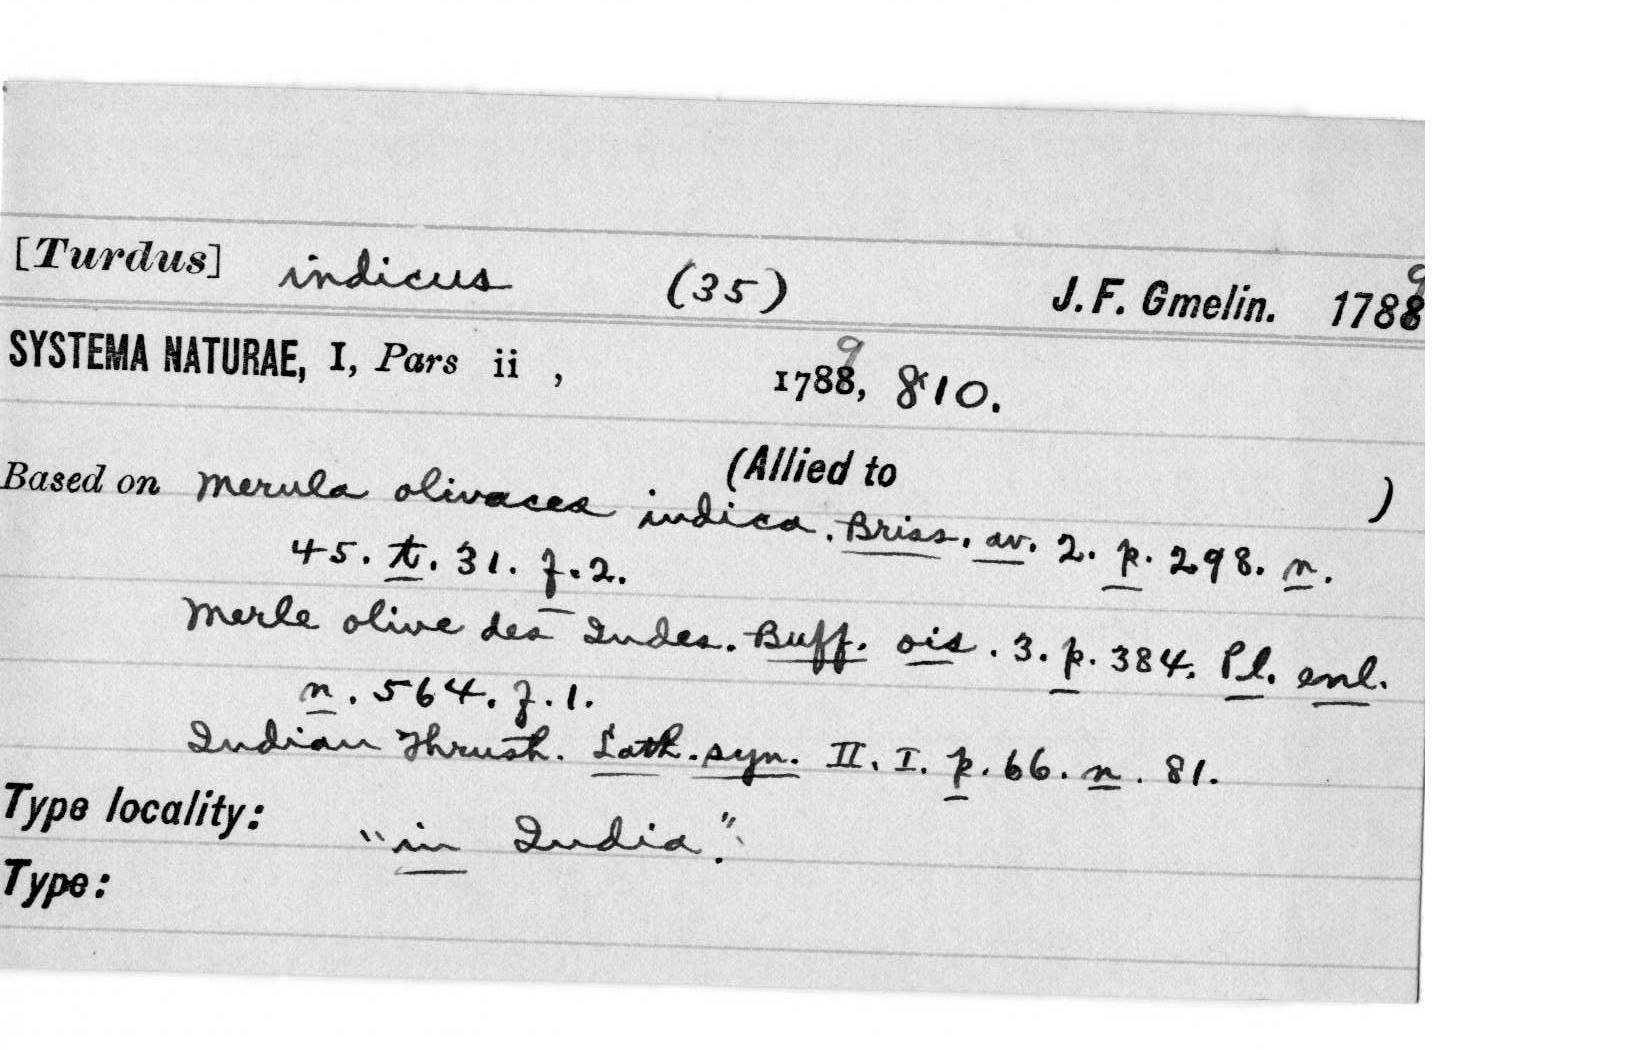 [Turdus] indicus (35) J. F. Gmelin. 1788 9
SYSTEMA NATURAE, I, Pars ii , 1788, 9 810.
(Allied to )
Based on Merula olivacea indica. Briss. av. 2. p. 298. n.
45. t. 31. f. 2.
Merle olive des Indes. Buff. ois. 3. p. 384. Pl. enl.
n. 564. f. 1.
Indian Thrush. Lath. syn. II. I. p. 66. n. 81.
Type locality: "in India".
Type: